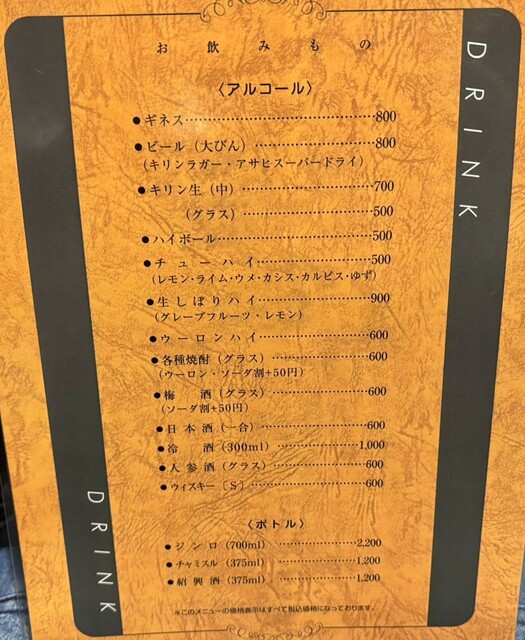 お飲みもの
DRINK
〈アルコール〉
●ギネス……………………800
●ビール（大びん）……………800
（キリンラガー・アサヒスーパードライ）
●キリン生（中）……………700
（グラス）……………500
●ハイボール……………500
●チューハイ……………500
（レモン・ライム・ウメ・カシス・カルピス・ゆず）
●生しぼりハイ……………900
（グレープフルーツ・レモン）
●ウーロンハイ……………600
●各種焼酎（グラス）……………600
（ウーロン・ソーダ割+50円）
●梅　酒（グラス）……………600
（ソーダ割+50円）
●日本酒（一合）……………600
●冷　酒（300ml）……………1,000
●人参酒（グラス）……………600
●ウィスキー〔S〕……………600
〈ボトル〉
●ジンロ（700ml）……………2,200
●チャミスル（375ml）……………1,200
●紹興酒（375ml）……………1,200
DRINK
※このメニューの価格表示はすべて税込価格になっております。